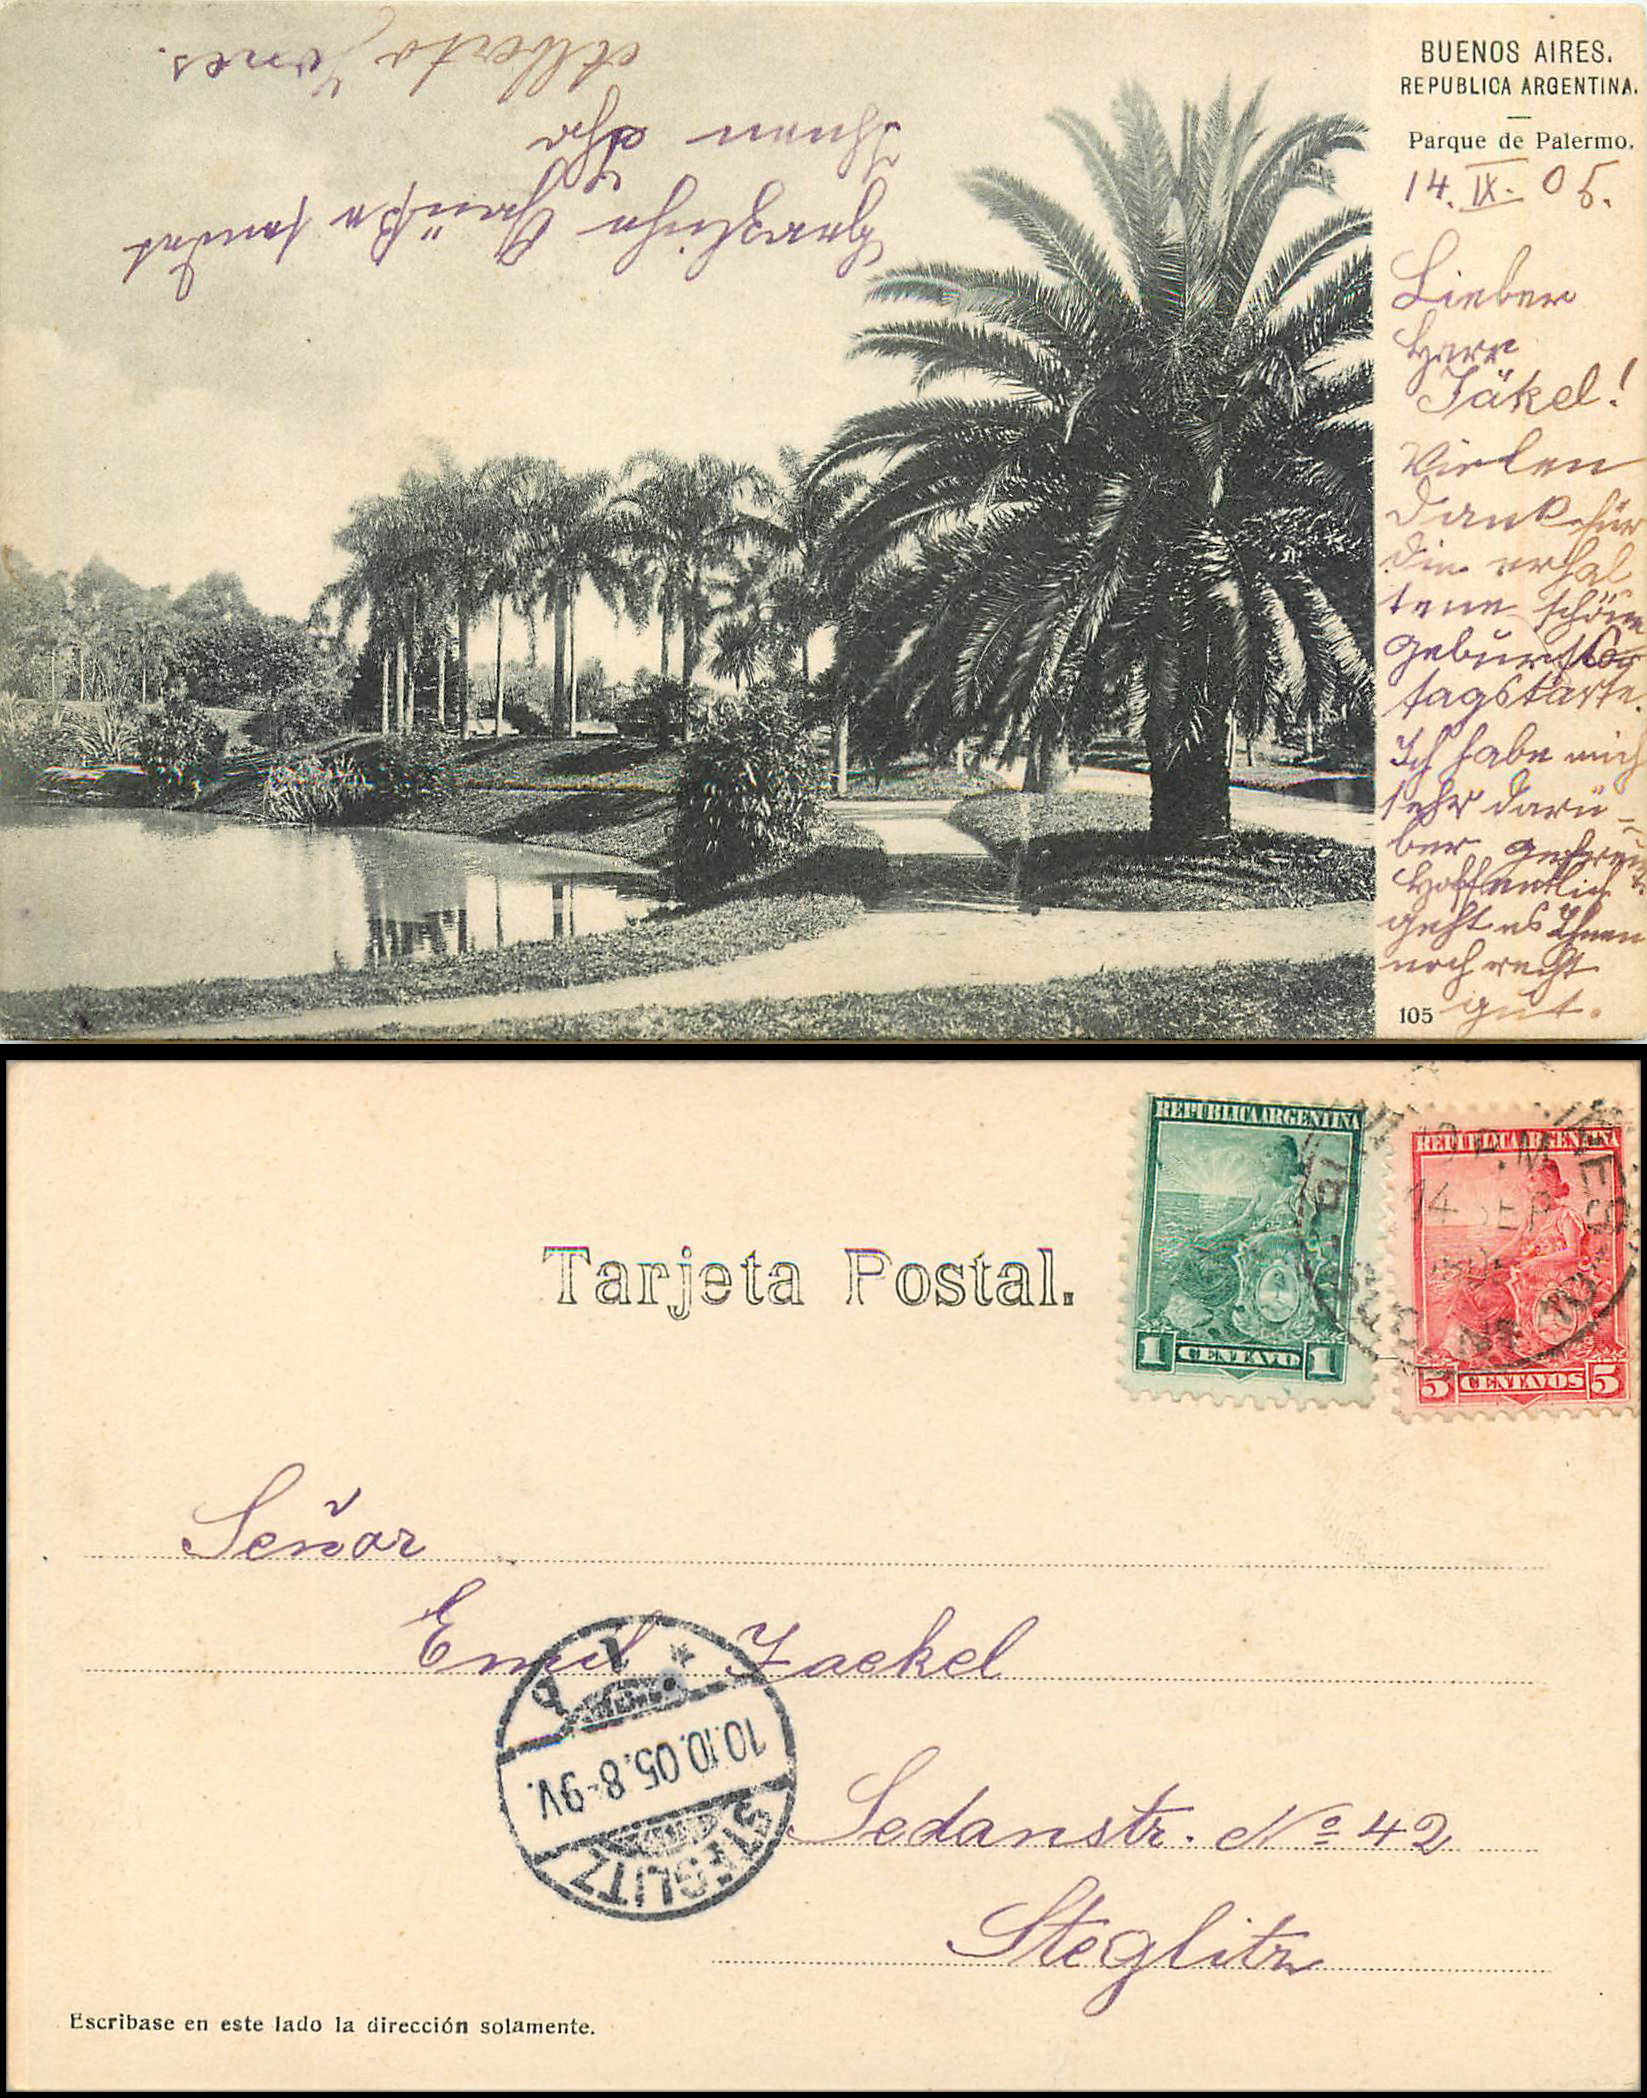 BUENOS AIRES.
REPUBLICA ARGENTINA.
Parque de Palermo.
14. IX. 05.
Lieber
Herr
Jäkel!
Vielen
Dank für
die erhal
tene schöne
Geburts
tagskarte.
Ich habe mich
sehr darü-
ber gefreut.
Hoffentlich
geht es Ihnen
noch recht
gut.
105
Herzliche Grüße sendet
Ihnen Ihr
Alberto Jones.
Tarjeta Postal.
REPUBLICA ARGENTINA
1 CENTAVO 1
REPUBLICA ARGENTINA
5 CENTAVOS 5
14 SEP
Señor
Emil Jaekel
Sedanstr. No 42
Steglitz
STEGLITZ
10.10.05.8-9V.
Escribase en este lado la dirección solamente.